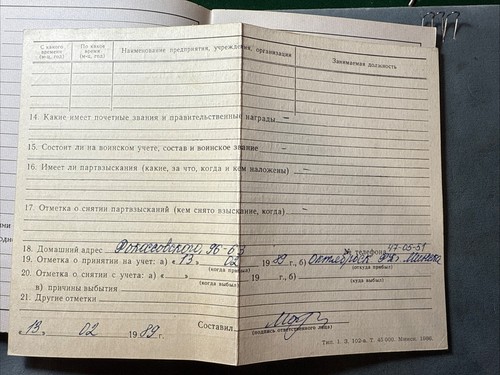 С какого времени (м-ц, год)
По какое время (м-ц, год)
Наименование предприятия, учреждения, организации
Занимаемая должность
14. Какие имеет почетные звания и правительственные награды —
15. Состоит ли на воинском учете, состав и воинское звание —
16. Имеет ли партвзыскания (какие, за что, когда и кем наложены) —
17. Отметка о снятии партвзысканий (кем снято взыскание, когда) —
18. Домашний адрес Рокоссовского, 96-63 № телефона 47-05-51
19. Отметка о принятии на учет: а) «13» 02 1989 г., б) Октябрьск Минска
(когда прибыл) (откуда прибыл)
20. Отметка о снятии с учета: а) « » 19 г., б)
(когда выбыл) (куда выбыл)
в) причины выбытия
21. Другие отметки
«13» 02 1989 г. Составил
(подпись ответственного лица)
Тип. 1. З. 102-а. Т. 45 000. Минск.